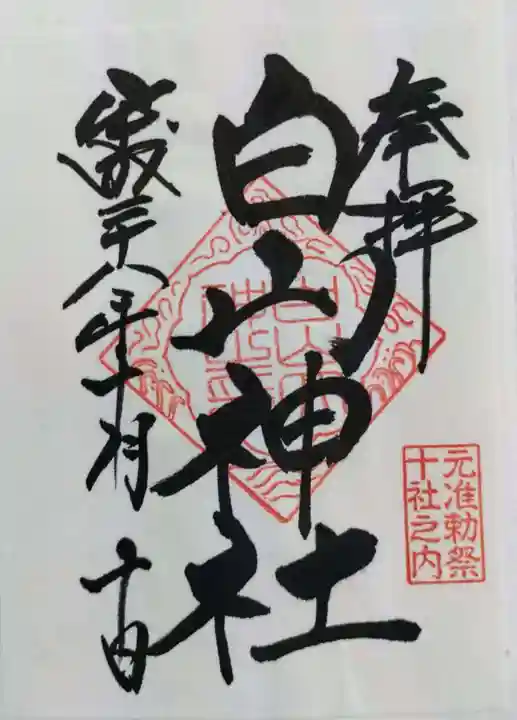 奉拝
白山神社
平成二十八年十一月十四日
元准勅祭
十社之内